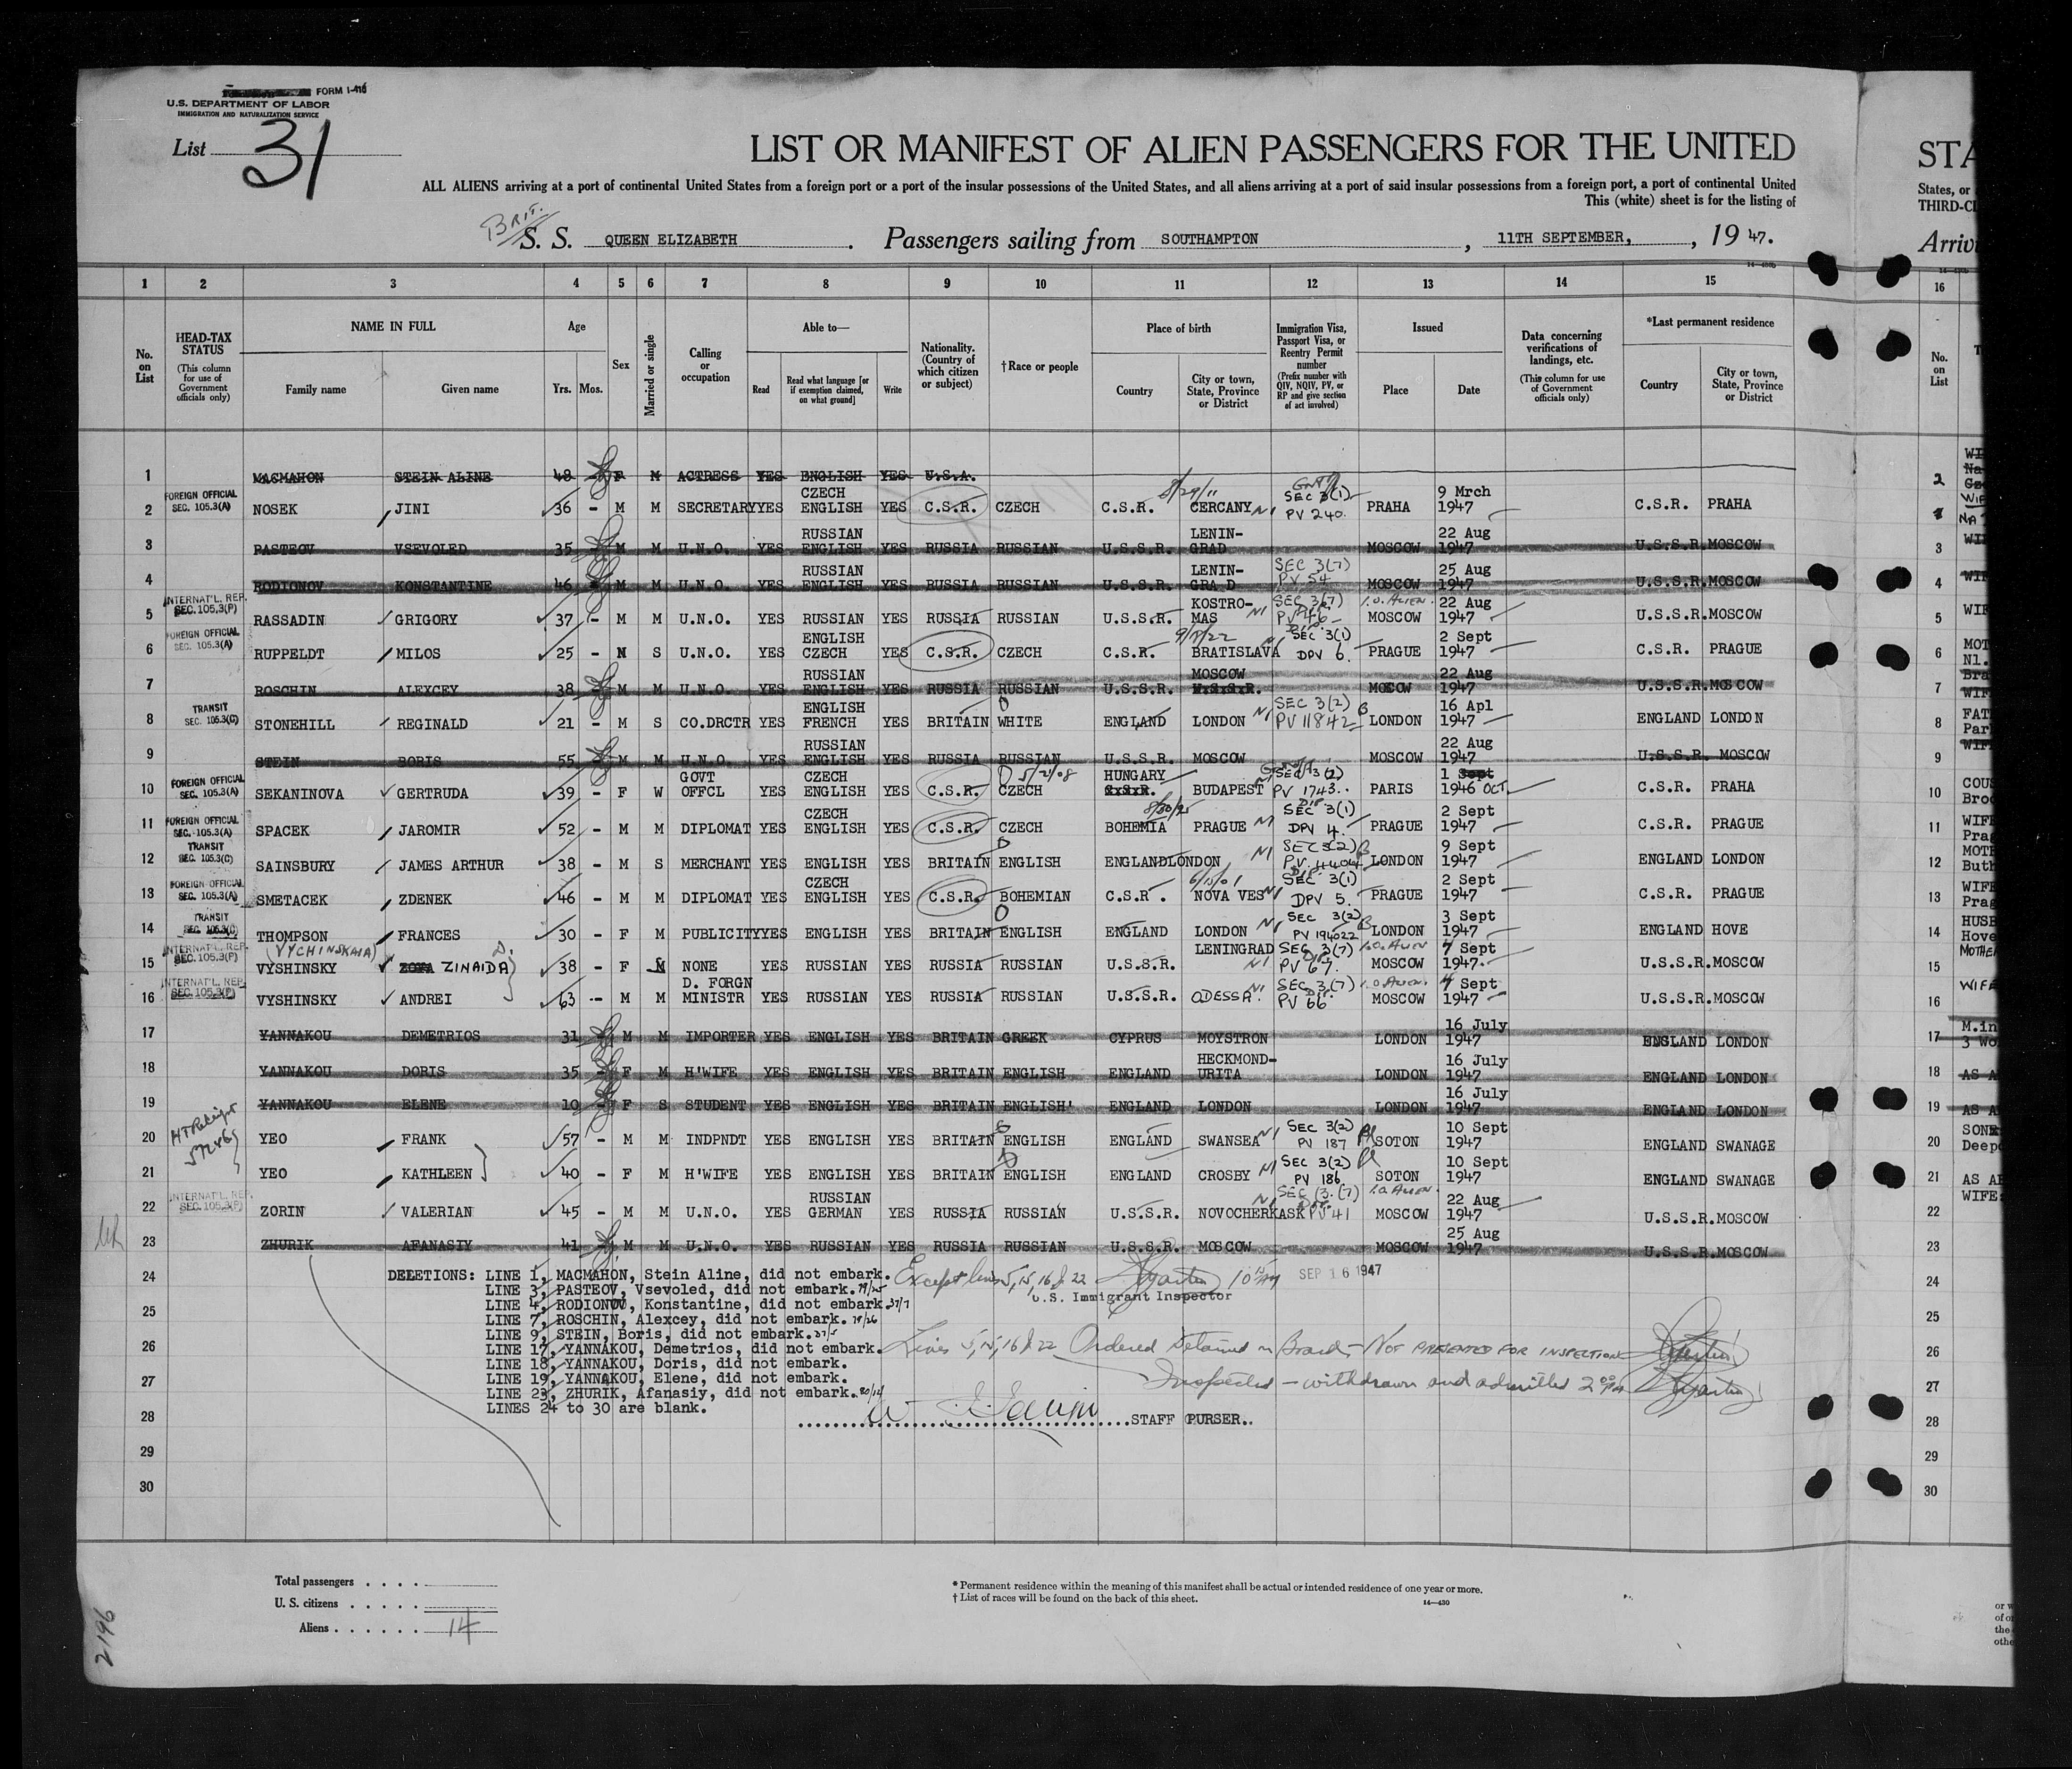 FORM I-416
U.S. DEPARTMENT OF LABOR
IMMIGRATION AND NATURALIZATION SERVICE
List 31
LIST OR MANIFEST OF ALIEN PASSENGERS FOR THE UNITED
STA
ALL ALIENS arriving at a port of continental United States from a foreign port or a port of the insular possessions of the United States, and all aliens arriving at a port of said insular possessions from a foreign port, a port of continental United
States, or
This (white) sheet is for the listing of
THIRD-CL
BRIT.
S. S. QUEEN ELIZABETH. Passengers sailing from SOUTHAMPTON, 11TH SEPTEMBER, , 19 47.
Arrivi
1 2 3 4 5 6 7 8 9 10 11 12 13 14 15 16
No. on List
HEAD-TAX STATUS (This column for use of Government officials only)
NAME IN FULL
Family name Given name
Age
Yrs. Mos.
Sex
Married or single
Calling or occupation
Able to—
Read Read what language [or if exemption claimed, on what ground] Write
Nationality. (Country of which citizen or subject)
†Race or people
Place of birth
Country City or town, State, Province or District
Immigration Visa, Passport Visa, or Reentry Permit number (Prefix number with QIV, NQIV, PV, or RP and give section of act involved)
Issued
Place Date
Data concerning verifications of landings, etc. (This column for use of Government officials only)
*Last permanent residence
Country City or town, State, Province or District
No. on List
1 MACMAHON STEIN ALINE 48 F M ACTRESS YES ENGLISH YES U.S.A.
2 FOREIGN OFFICIAL SEC. 105.3(A) NOSEK JINI 36 - M M SECRETARY YES CZECH ENGLISH YES C.S.R. CZECH C.S.R. 8/29/11 CERCANY NI SEC 3(1) PV 240. PRAHA 9 Mrch 1947 C.S.R. PRAHA
3 PASTEOV VSEVOLED 35 - M M U.N.O. YES RUSSIAN ENGLISH YES RUSSIA RUSSIAN U.S.S.R. LENIN-GRAD MOSCOW 22 Aug 1947 U.S.S.R. MOSCOW
4 RODIONOV KONSTANTINE 46 M M U.N.O. YES RUSSIAN ENGLISH YES RUSSIA RUSSIAN U.S.S.R. LENIN-GRA D SEC 3(7) PV 54 MOSCOW 25 Aug 1947 U.S.S.R. MOSCOW
5 INTERNAT'L. REP. SEC. 105.3(P) RASSADIN GRIGORY 37 - M M U.N.O. YES RUSSIAN YES RUSSIA RUSSIAN U.S.S.R. KOSTRO-MAS NI SEC 3(7) PV 46 I.O. ALIEN MOSCOW 22 Aug 1947 U.S.S.R. MOSCOW
6 FOREIGN OFFICIAL SEC. 105.3(A) RUPPELDT MILOS 25 - M S U.N.O. YES ENGLISH CZECH YES C.S.R. CZECH C.S.R. BRATISLAVA NI SEC 3(1) DPV 6. PRAGUE 2 Sept 1947 C.S.R. PRAGUE
7 ROSCHIN ALEXCEY 38 M M U.N.O. YES RUSSIAN ENGLISH YES RUSSIA RUSSIAN U.S.S.R. MOSCOW MOSCOW 22 Aug 1947 U.S.S.R. MOSCOW
8 TRANSIT SEC. 105.3(C) STONEHILL REGINALD 21 - M S CO.DRCTR YES ENGLISH FRENCH YES BRITAIN WHITE ENGLAND LONDON NI SEC 3(2) PV 11842 LONDON 16 Apl 1947 ENGLAND LONDON
9 STEIN BORIS 55 M M U.N.O. YES RUSSIAN ENGLISH YES RUSSIA RUSSIAN U.S.S.R. MOSCOW MOSCOW 22 Aug 1947 U.S.S.R. MOSCOW
10 FOREIGN OFFICIAL SEC. 105.3(A) SEKANINOVA GERTRUDA 39 - F W GOVT OFFCL YES CZECH ENGLISH YES C.S.R. CZECH HUNGARY BUDAPEST NI PV 1743 PARIS 1 Sept 1946 OCT C.S.R. PRAHA
11 FOREIGN OFFICIAL SEC. 105.3(A) SPACEK JAROMIR 52 - M M DIPLOMAT YES CZECH ENGLISH YES C.S.R. CZECH BOHEMIA PRAGUE NI SEC 3(1) DPV 4. PRAGUE 2 Sept 1947 C.S.R. PRAGUE
12 TRANSIT SEC. 105.3(C) SAINSBURY JAMES ARTHUR 38 - M S MERCHANT YES ENGLISH YES BRITAIN ENGLISH ENGLAND LONDON NI SEC 3(2) LONDON 9 Sept 1947 ENGLAND LONDON
13 FOREIGN OFFICIAL SEC. 105.3(A) SMETACEK ZDENEK 46 - M M DIPLOMAT YES CZECH ENGLISH YES C.S.R. BOHEMIAN C.S.R. 6/15/01 NOVA VES NI SEC 3(1) DPV 5. PRAGUE 2 Sept 1947 C.S.R. PRAGUE
14 TRANSIT SEC. 105.3(C) THOMPSON FRANCES 30 - F M PUBLICITY YES ENGLISH YES BRITAIN ENGLISH ENGLAND LONDON NI SEC 3(2) PV 194022 LONDON 3 Sept 1947 ENGLAND HOVE
15 INTERNAT'L. REP. SEC. 105.3(P) (VYCHINSKAIA) VYSHINSKY ZINAIDA 38 - F M NONE YES RUSSIAN YES RUSSIA RUSSIAN U.S.S.R. LENINGRAD NI SEC 3(7) PV 67. I.O. ALIEN MOSCOW 7 Sept 1947 U.S.S.R. MOSCOW
16 INTERNAT'L. REP. SEC. 105.3(P) VYSHINSKY ANDREI 63 - M M D. FORGN MINISTR YES RUSSIAN YES RUSSIA RUSSIAN U.S.S.R. ODESSA NI SEC 3(7) PV 66 MOSCOW 7 Sept 1947 U.S.S.R. MOSCOW
17 YANNAKOU DEMETRIOS 31 M M IMPORTER YES ENGLISH YES BRITAIN GREEK CYPRUS MOYSTRON LONDON 16 July 1947 ENGLAND LONDON
18 YANNAKOU DORIS 35 - F M H'WIFE YES ENGLISH YES BRITAIN ENGLISH ENGLAND HECKMOND-URITA LONDON 16 July 1947 ENGLAND LONDON
19 YANNAKOU ELENE 19 F S STUDENT YES ENGLISH YES BRITAIN ENGLISH' ENGLAND LONDON LONDON 16 July 1947 ENGLAND LONDON
20 YEO FRANK 57 - M M INDPNDT YES ENGLISH YES BRITAIN ENGLISH ENGLAND SWANSEA NI SEC 3(2) PV 187 SOTON 10 Sept 1947 ENGLAND SWANAGE
21 YEO KATHLEEN 40 - F M H'WIFE YES ENGLISH YES BRITAIN ENGLISH ENGLAND CROSBY NI SEC 3(2) PV 186 SOTON 10 Sept 1947 ENGLAND SWANAGE
22 INTERNAT'L. REP. SEC. 105.3(P) ZORIN VALERIAN 45 - M M U.N.O. YES RUSSIAN GERMAN YES RUSSIA RUSSIAN U.S.S.R. NOVOCHERKASK NI SEC 3.(7) PV 41 I.O. ALIEN MOSCOW 22 Aug 1947 U.S.S.R. MOSCOW
23 ZHURIK AFANASIY 41 M M U.N.O. YES RUSSIAN YES RUSSIA RUSSIAN U.S.S.R. MOSCOW MOSCOW 25 Aug 1947 U.S.S.R. MOSCOW
24 DELETIONS: LINE 1, MACMAHON, Stein Aline, did not embark. Except lines 5, 15, 16 & 22 SEP 16 1947
LINE 3, PASTEOV, Vsevoled, did not embark.
U.S. Immigrant Inspector
LINE 4, RODIONOV, Konstantine, did not embark.
25 LINE 7, ROSCHIN, Alexcey, did not embark.
LINE 9, STEIN, Boris, did not embark.
26 LINE 17, YANNAKOU, Demetrios, did not embark. Lines 5, 15, 16 & 22 Ordered Detained in Board - NOT PRESENTED FOR INSPECTION
LINE 18, YANNAKOU, Doris, did not embark.
27 LINE 19, YANNAKOU, Elene, did not embark. Inspected - withdrawn and admitted 2 00 PM
LINE 23, ZHURIK, Afanasiy, did not embark.
LINES 24 to 30 are blank.
28 STAFF PURSER.
29
30
Total passengers
U. S. citizens
Aliens 14
* Permanent residence within the meaning of this manifest shall be actual or intended residence of one year or more.
† List of races will be found on the back of this sheet.
14—430
2196